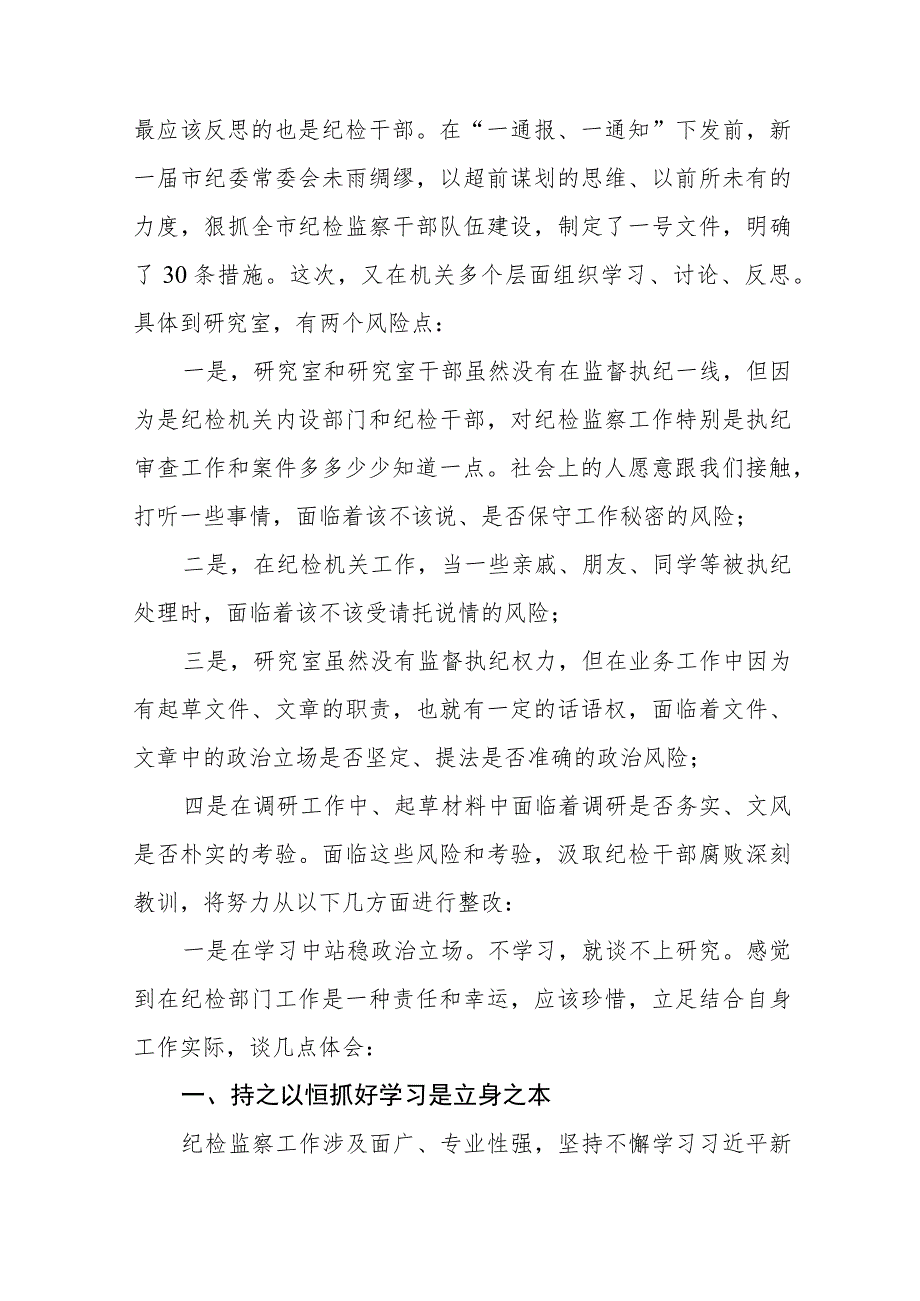 最应该反思的也是纪检干部。在“一通报、一通知”下发前，新
一届市纪委常委会未雨绸缪，以超前谋划的思维、以前所未有的
力度，狠抓全市纪检监察干部队伍建设，制定了一号文件，明确
了 30 条措施。这次，又在机关多个层面组织学习、讨论、反思。
具体到研究室，有两个风险点：
一是，研究室和研究室干部虽然没有在监督执纪一线，但因
为是纪检机关内设部门和纪检干部，对纪检监察工作特别是执纪
审查工作和案件多多少少知道一点。社会上的人愿意跟我们接触，
打听一些事情，面临着该不该说、是否保守工作秘密的风险；
二是，在纪检机关工作，当一些亲戚、朋友、同学等被执纪
处理时，面临着该不该受请托说情的风险；
三是，研究室虽然没有监督执纪权力，但在业务工作中因为
有起草文件、文章的职责，也就有一定的话语权，面临着文件、
文章中的政治立场是否坚定、提法是否准确的政治风险；
四是在调研工作中、起草材料中面临着调研是否务实、文风
是否朴实的考验。面临这些风险和考验，汲取纪检干部腐败深刻
教训，将努力从以下几方面进行整改：
一是在学习中站稳政治立场。不学习，就谈不上研究。感觉
到在纪检部门工作是一种责任和幸运，应该珍惜，立足结合自身
工作实际，谈几点体会：
一、持之以恒抓好学习是立身之本
纪检监察工作涉及面广、专业性强，坚持不懈学习习近平新